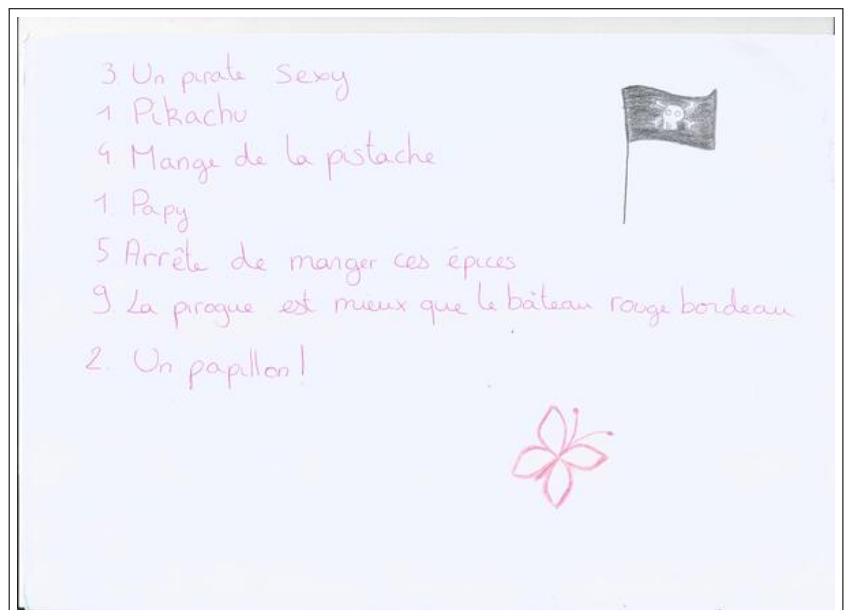 3 Un pirate sexy
1 Pikachu
4 Mange de la pistache
1 Papy
5 Arrête de manger ces épices
9 La pirogue est mieux que le bâteau rouge bordeau
2. Un papillon!